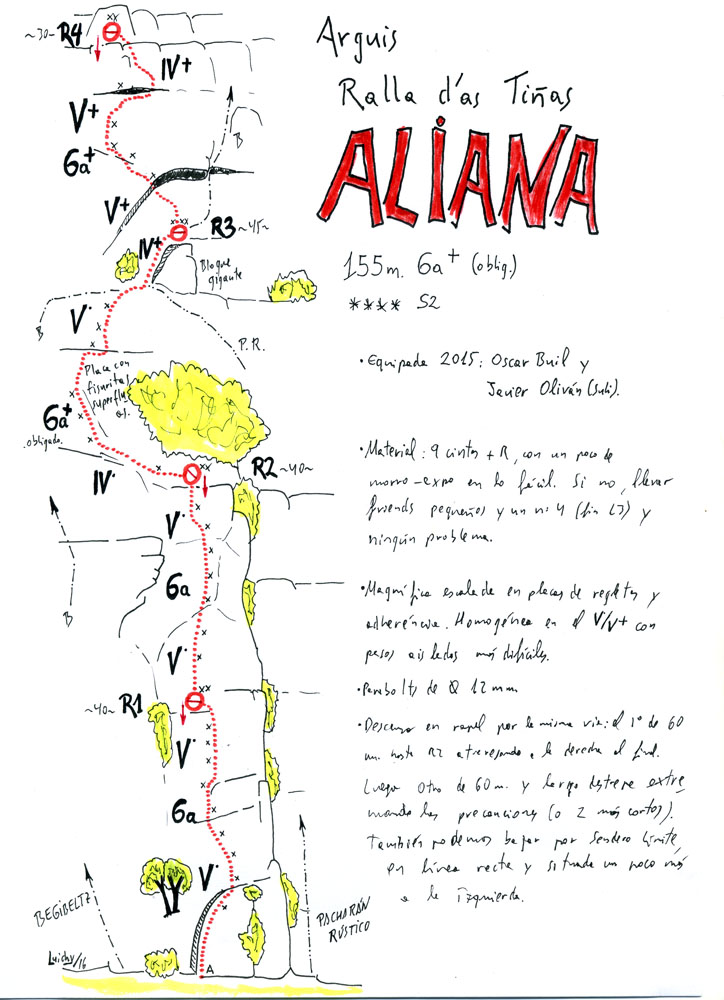 Arguis
Ralla d'as Tiñas
ALIANA
155m. 6a+ (oblig.)
**** S2
• Equipada 2015: Oscar Buil y
Javier Oliván (Suli).
• Material: 9 cintas + R, con un poco de
morro-expo en lo fácil. Si no, llevar
friends pequeños y un nº 4 (fin L3) y
ningún problema.
• Magnífica escalada en placas de regletas y
adherencia. Homogénea en el V/V+ con
pasos aislados más difíciles.
• Parabolts de Ø 12 mm
• Descenso en rapel por la misma vía: el 1º de 60
m. hasta R2 atravesando a la derecha al final.
Luego otro de 60 m. y largo destrepe extre
mando las precauciones (o 2 más cortos).
También podemos bajar por Sendero Límite,
en línea recta y situada un poco más
a la izquierda.
~30~ R4
IV+
V+
6a+
B
V+
R3 ~45~
IV+
Bloque
gigante
V·
B
P.R.
Placa con
fisuritas
superfluas
6a+
obligado
IV·
R2 ~40~
V·
6a
B
V·
~40~ R1
V·
6a
V·
BEGIBELTZ
PACHARÁN
RÚSTICO
Luichy/16
A